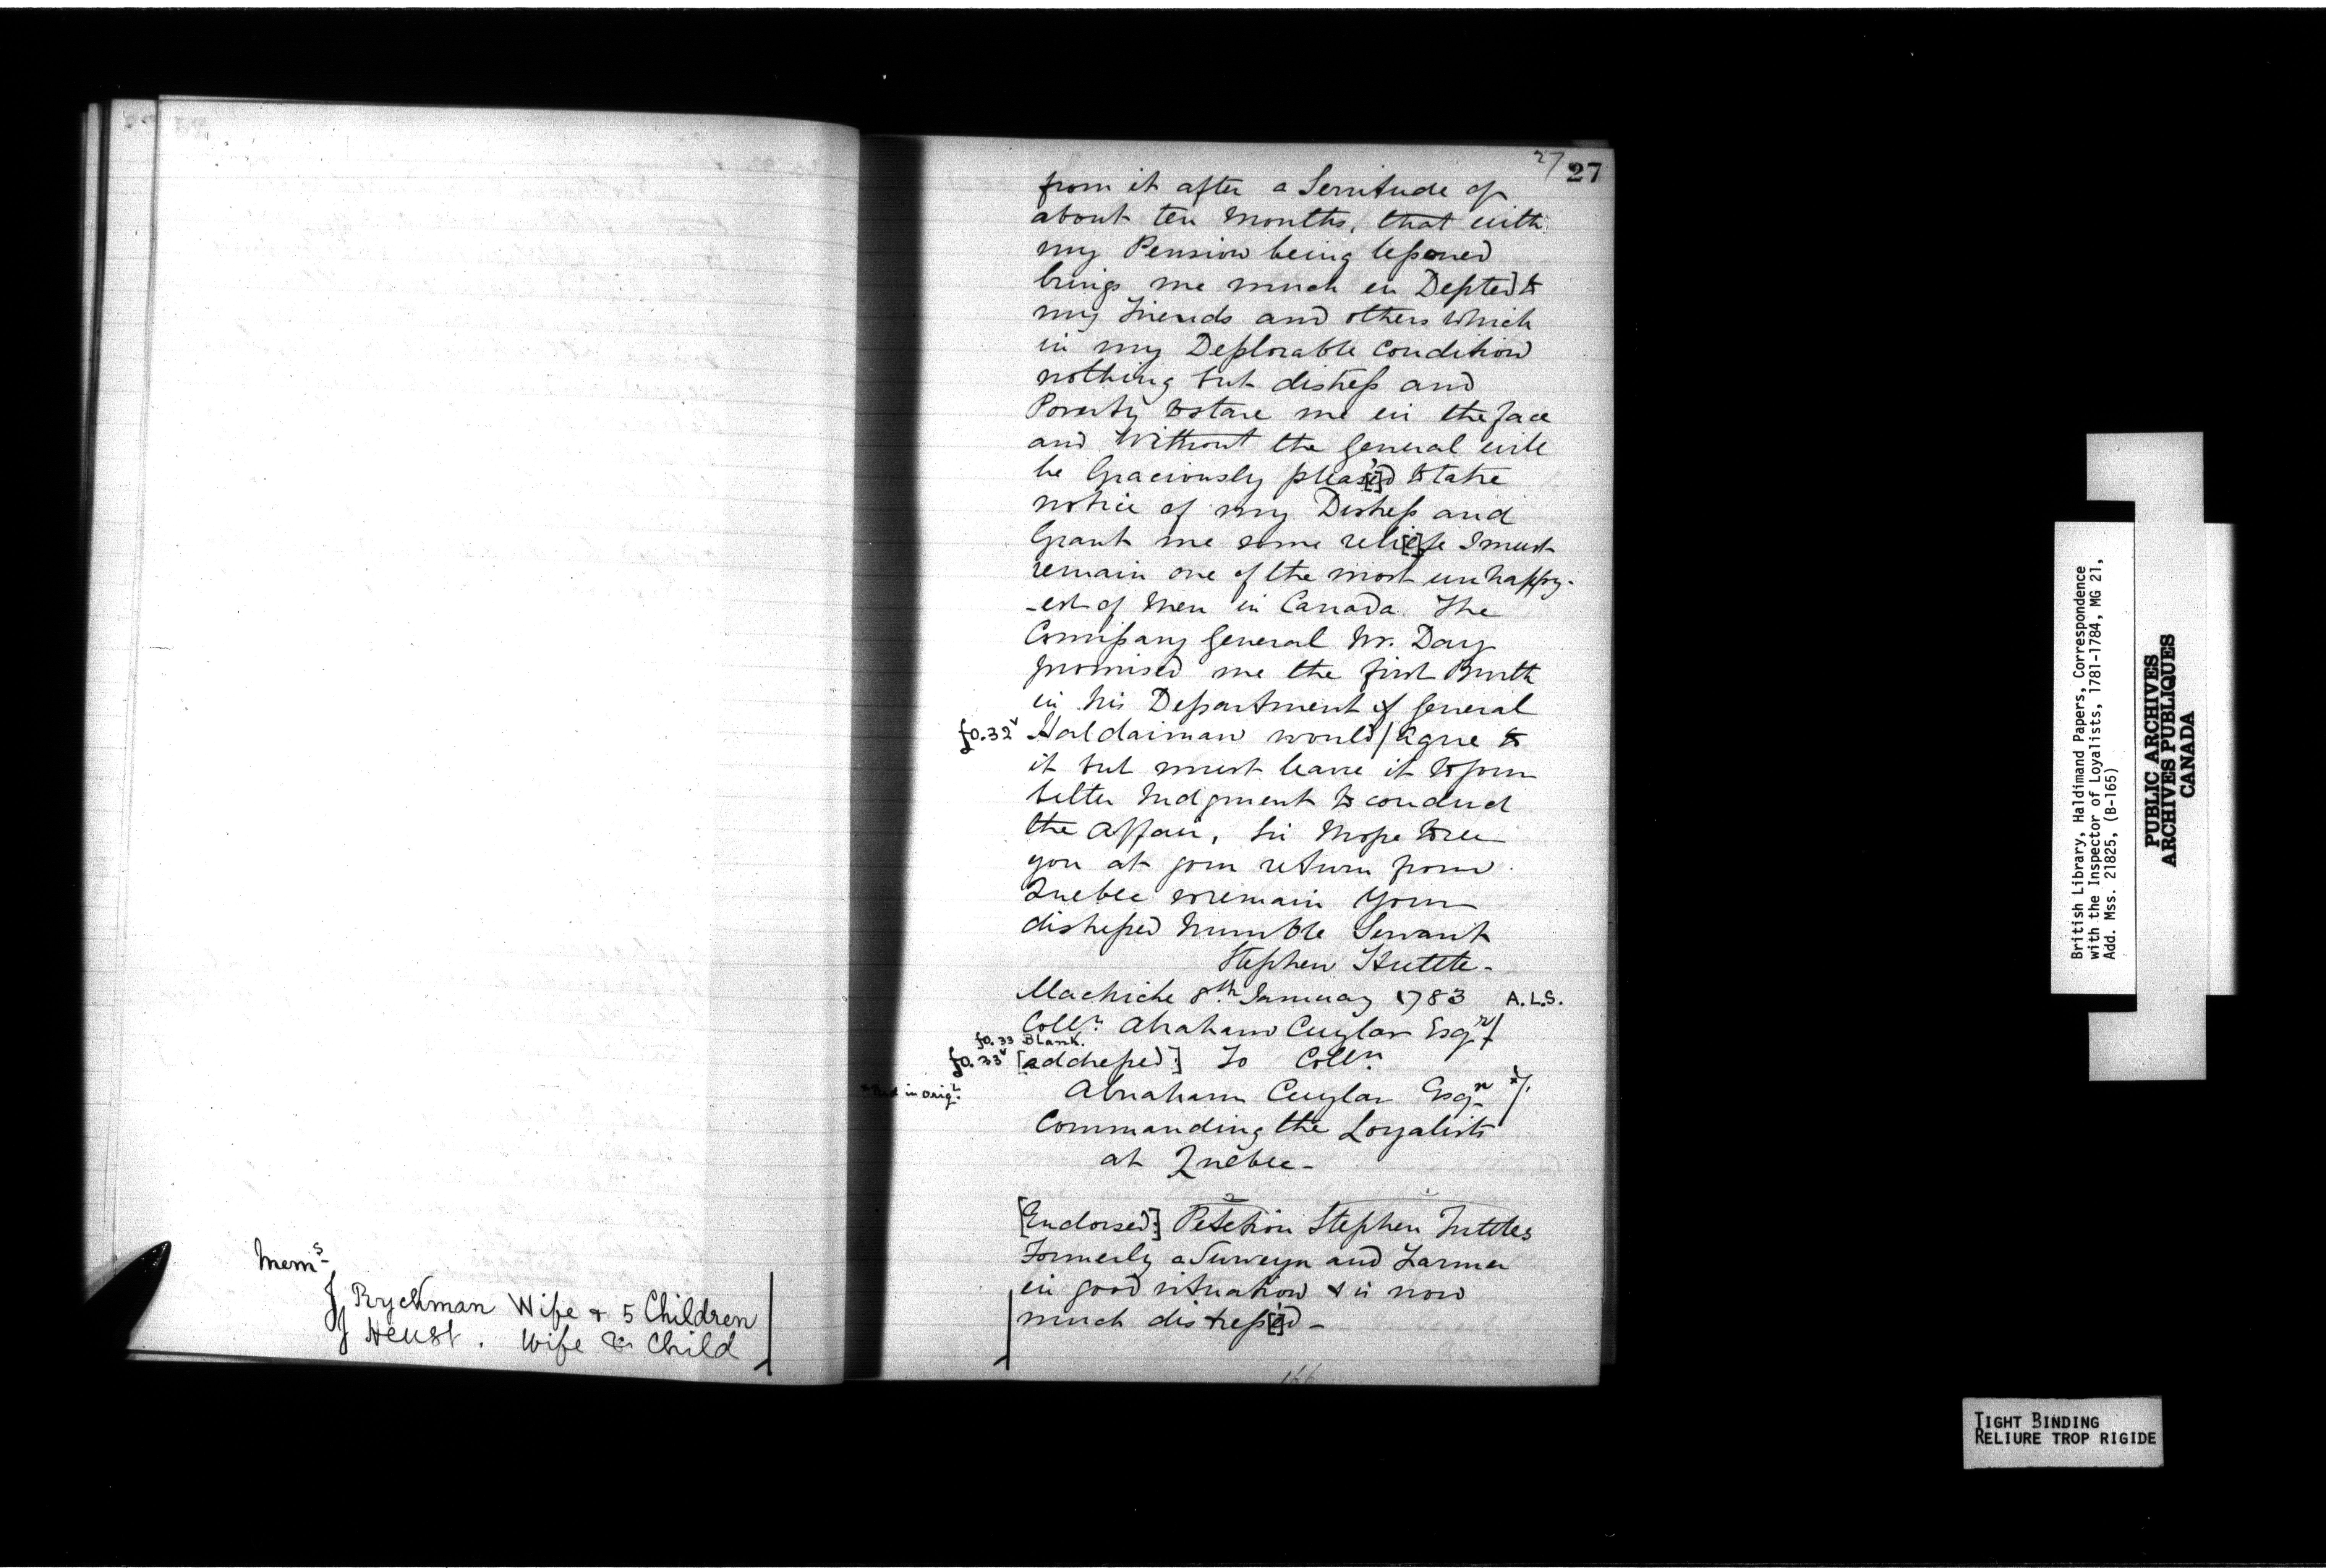 Mem.s
J Ryckman Wife & 5 Children
J Heust. Wife & Child
27 27
from it after a Servitude of
about ten Months, that with
my Pension being lessoned
brings me much in Depted to
my Friends and others which
in my Deplorable Condition
nothing but distress and
Poverty to stare me in the face
and Without the General will
be Graciously pleas'[e]d to take
notice of my Distress and
Grant me some reli[e]fe I must
remain one of the most unhappy-
-est of Men in Canada. The
Commissary General Mr. Day
promised me the first Burth
in his Department if General
fo.32v Haldaiman would/agree to
it but must leave it to your
better Judgment to conduct
the Affair, Sir I hope to see
you at your return from
Quebec so remain Your
distressed humble Servant
Stephen Tuttle-
Machiche 8th January 1783 A.L.S.
Colln. Abraham Cuylar Esqr/
fo. 33 Blank.
fo. 33v [addressed:] To Colln.
Abraham Cuylar Esqr */.
* in orig.l
Commanding the Loyalists
at Quebec-
[Endorsed:] Petetion Stephen Tuttles
Formerly a Surveyr and Farmer
in good situation & is now
much distress'[e]d -
166
British Library, Haldimand Papers, Correspondence
with the Inspector of Loyalists, 1781-1784, MG 21,
Add. Mss. 21825, (B-165)
PUBLIC ARCHIVES
ARCHIVES PUBLIQUES
CANADA
TIGHT BINDING
RELIURE TROP RIGIDE